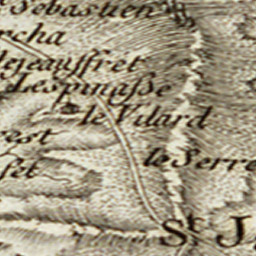 Sebastien
rcha
lejeauffret
Lespinasse
le Vilard
rest
le Serre
set
St J